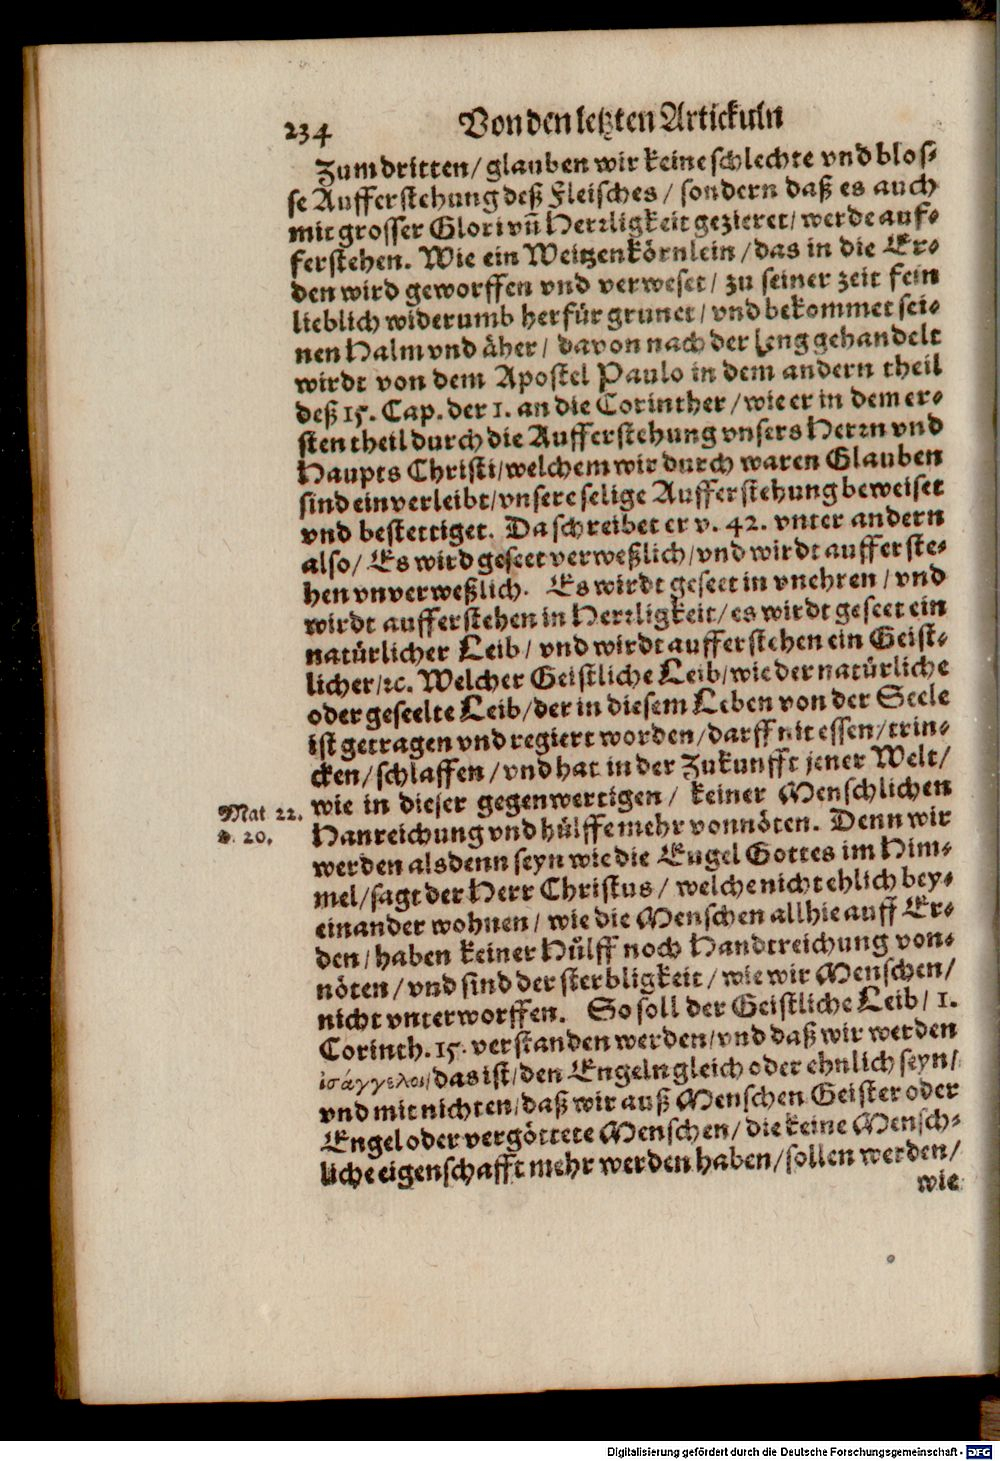 234 Von den letzten Artickuln
Zum dritten/ glauben wir keine schlechte vnd blos-
se Aufferstehung deß Fleisches/ sondern daß es auch
mit grosser Glori vñ Herrligkeit gezieret/ werde auf-
ferstehen. Wie ein Weitzenkörnlein/ das in die Er-
den wird geworffen vnd verweset/ zu seiner zeit fein
lieblich widerumb herfür grunet/ vnd bekommet sei-
nen Halm vnd äher/ davon nach der Leng gehandelt
wirdt von dem Apostel Paulo in dem andern theil
deß 15. Cap. der 1. an die Corinther/ wie er in dem er-
sten theil durch die Aufferstehung vnsers Herrn vnd
Haupts Christi/ welchem wir durch waren Glauben
sind einverleibt/ vnsere selige Aufferstehung beweiset
vnd bestettiget. Da schreibet er v. 42. vnter andern
also/ Es wird geseet verweßlich/ vnd wirdt aufferste-
hen vnverweßlich. Es wirdt geseet in vnehren/ vnd
wirdt aufferstehen in Herrligkeit/ es wirdt geseet ein
natürlicher Leib/ vnd wirdt aufferstehen ein Geist-
licher/ ꝛc. Welcher Geistliche Leib/ wie der natürliche
oder geseelte Leib/ der in diesem Leben von der Seele
ist getragen vnd regiert worden/ darff nit essen/ trin-
cken/ schlaffen/ vnd hat in der Zukunfft jener Welt/
wie in dieser gegenwertigen/ keiner Menschlichen
Mat 22.
v. 20.
Hanreichung vnd hülffe mehr vonnöten. Denn wir
werden alsdenn seyn wie die Engel Gottes im Him-
mel/ sagt der Herr Christus/ welche nicht ehlich bey-
einander wohnen/ wie die Menschen allhie auff Er-
den/ haben keiner Hülff noch Handtreichung von-
nöten/ vnd sind der sterbligkeit/ wie wir Menschen/
nicht vnterworffen. So soll der Geistliche Leib/ 1.
Corinth. 15. verstanden werden/ vnd daß wir werden
ἰσάγγελοι/ das ist/ den Engeln gleich oder ehnlich seyn/
vnd mit nichten/ daß wir auß Menschen Geister oder
Engel oder vergöttete Menschen/ die keine Mensch-
liche eigenschafft mehr werden haben/ sollen werden/
wie
Digitalisierung gefördert durch die Deutsche Forschungsgemeinschaft - DFG